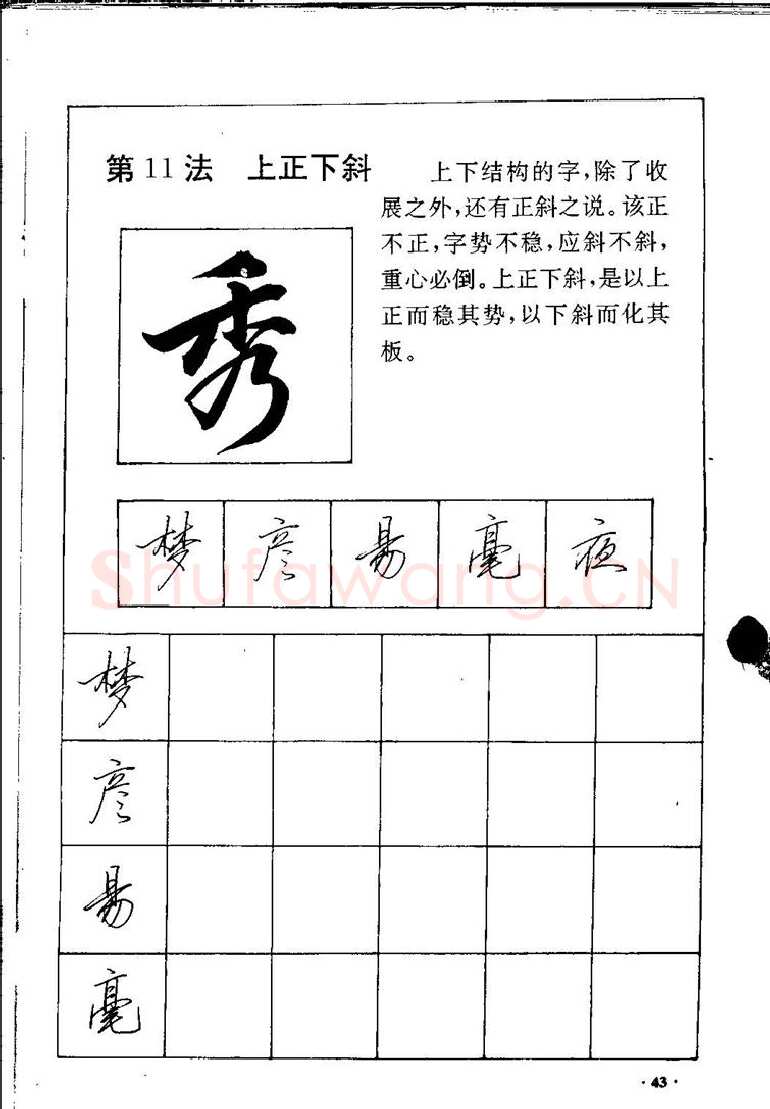 第11法 上正下斜
上下结构的字,除了收
展之外,还有正斜之说。该正
不正,字势不稳,应斜不斜,
重心必倒。上正下斜,是以上
正而稳其势,以下斜而化其
板。
秀
梦 彦 易 毫 夜
shufawang.CN
梦
彦
易
毫
·43·